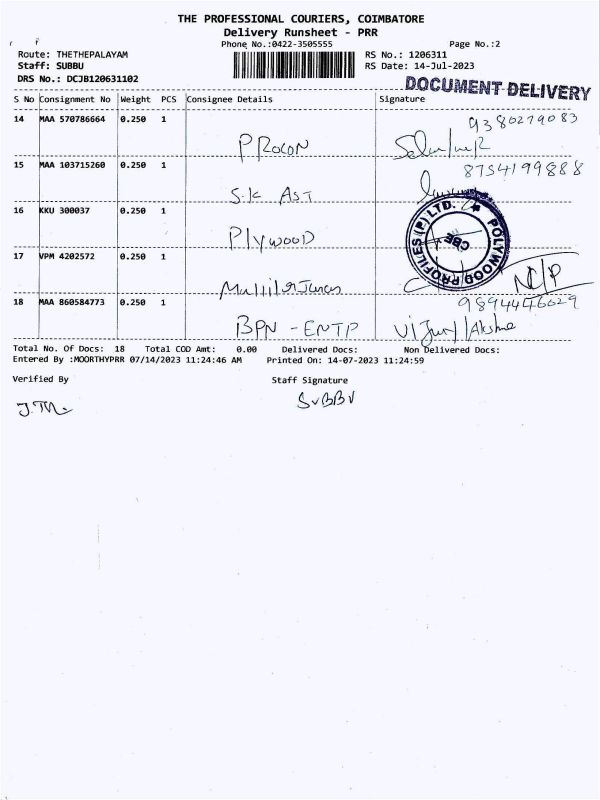 THE PROFESSIONAL COURIERS, COIMBATORE
Delivery Runsheet - PRR
Phone No.:0422-3505555 Page No.:2
Route: THETHEPALAYAM RS No.: 1206311
Staff: SUBBU RS Date: 14-Jul-2023
DRS No.: DCJB120631102
DOCUMENT DELIVERY
S No Consignment No Weight PCS Consignee Details Signature
14 MAA 570786664 0.250 1 PROCON 9380279083
15 MAA 103715260 0.250 1 S.K AST 8754199888
16 KKU 300037 0.250 1 Plywood
POLYWOOD PROFILES (P) LTD. CBE
17 VPM 4202572 0.250 1
18 MAA 860584773 0.250 1 BPN - ENTP
Total No. Of Docs: 18 Total COD Amt: 0.00 Delivered Docs: Non Delivered Docs:
Entered By :MOORTHYPRR 07/14/2023 11:24:46 AM Printed On: 14-07-2023 11:24:59
Verified By Staff Signature
SUBBU